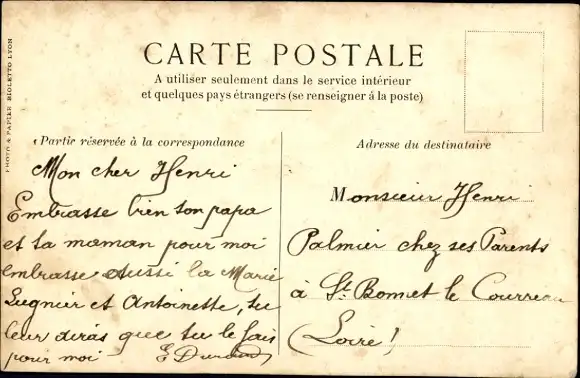 CARTE POSTALE
A utiliser seulement dans le service intérieur
et quelques pays étrangers (se renseigner à la poste)
PHOTO & PAPIER BIOLETTO LYON
Partir réservée à la correspondance
Mon cher Henri
Embrasse bien ton papa
et ta maman pour moi
embrasse aussi la Marie
et Antoinette, tu
leur diras que tu le fais
pour moi E Durand
Adresse du destinataire
Monsieur Henri
Palmier chez ses Parents
à St Bonnet le Courreau
(Loire)